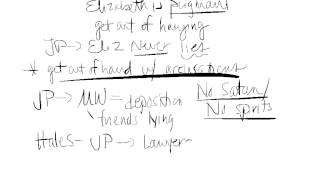 Elizabeth is pregnant
get out of hanging
JP → Eliz Never lies
* get out of hand w/ accusations
JP → MW = deposition No Satan/
friends lying No spirits
Hales - JP → Lawyer